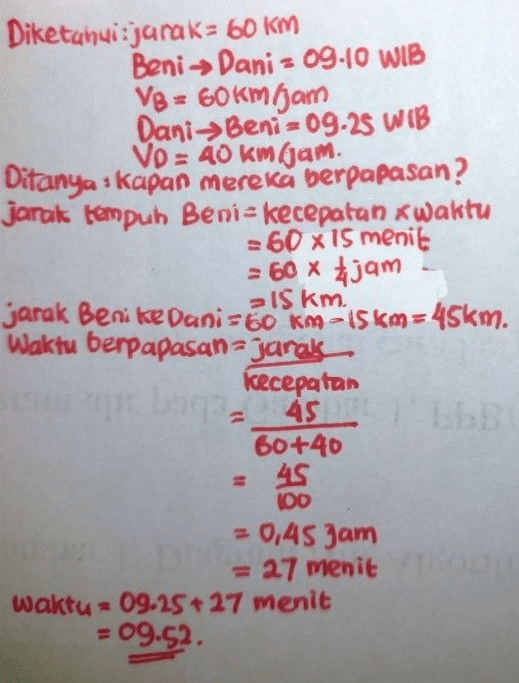 Diketahui: jarak = 60 KM
Beni → Dani = 09.10 WIB
VB = 60 KM/jam
Dani → Beni = 09.25 WIB
VD = 40 KM/jam.
Ditanya : Kapan mereka berpapasan?
jarak tempuh Beni = kecepatan x waktu
= 60 x 15 menit
= 60 x 1/4 jam
= 15 KM.
jarak Beni ke Dani = 60 KM - 15 KM = 45 KM.
Waktu berpapasan = jarak
kecepatan
= 45
60+40
= 45
100
= 0,45 Jam
= 27 menit
Waktu = 09.25 + 27 menit
= 09.52.